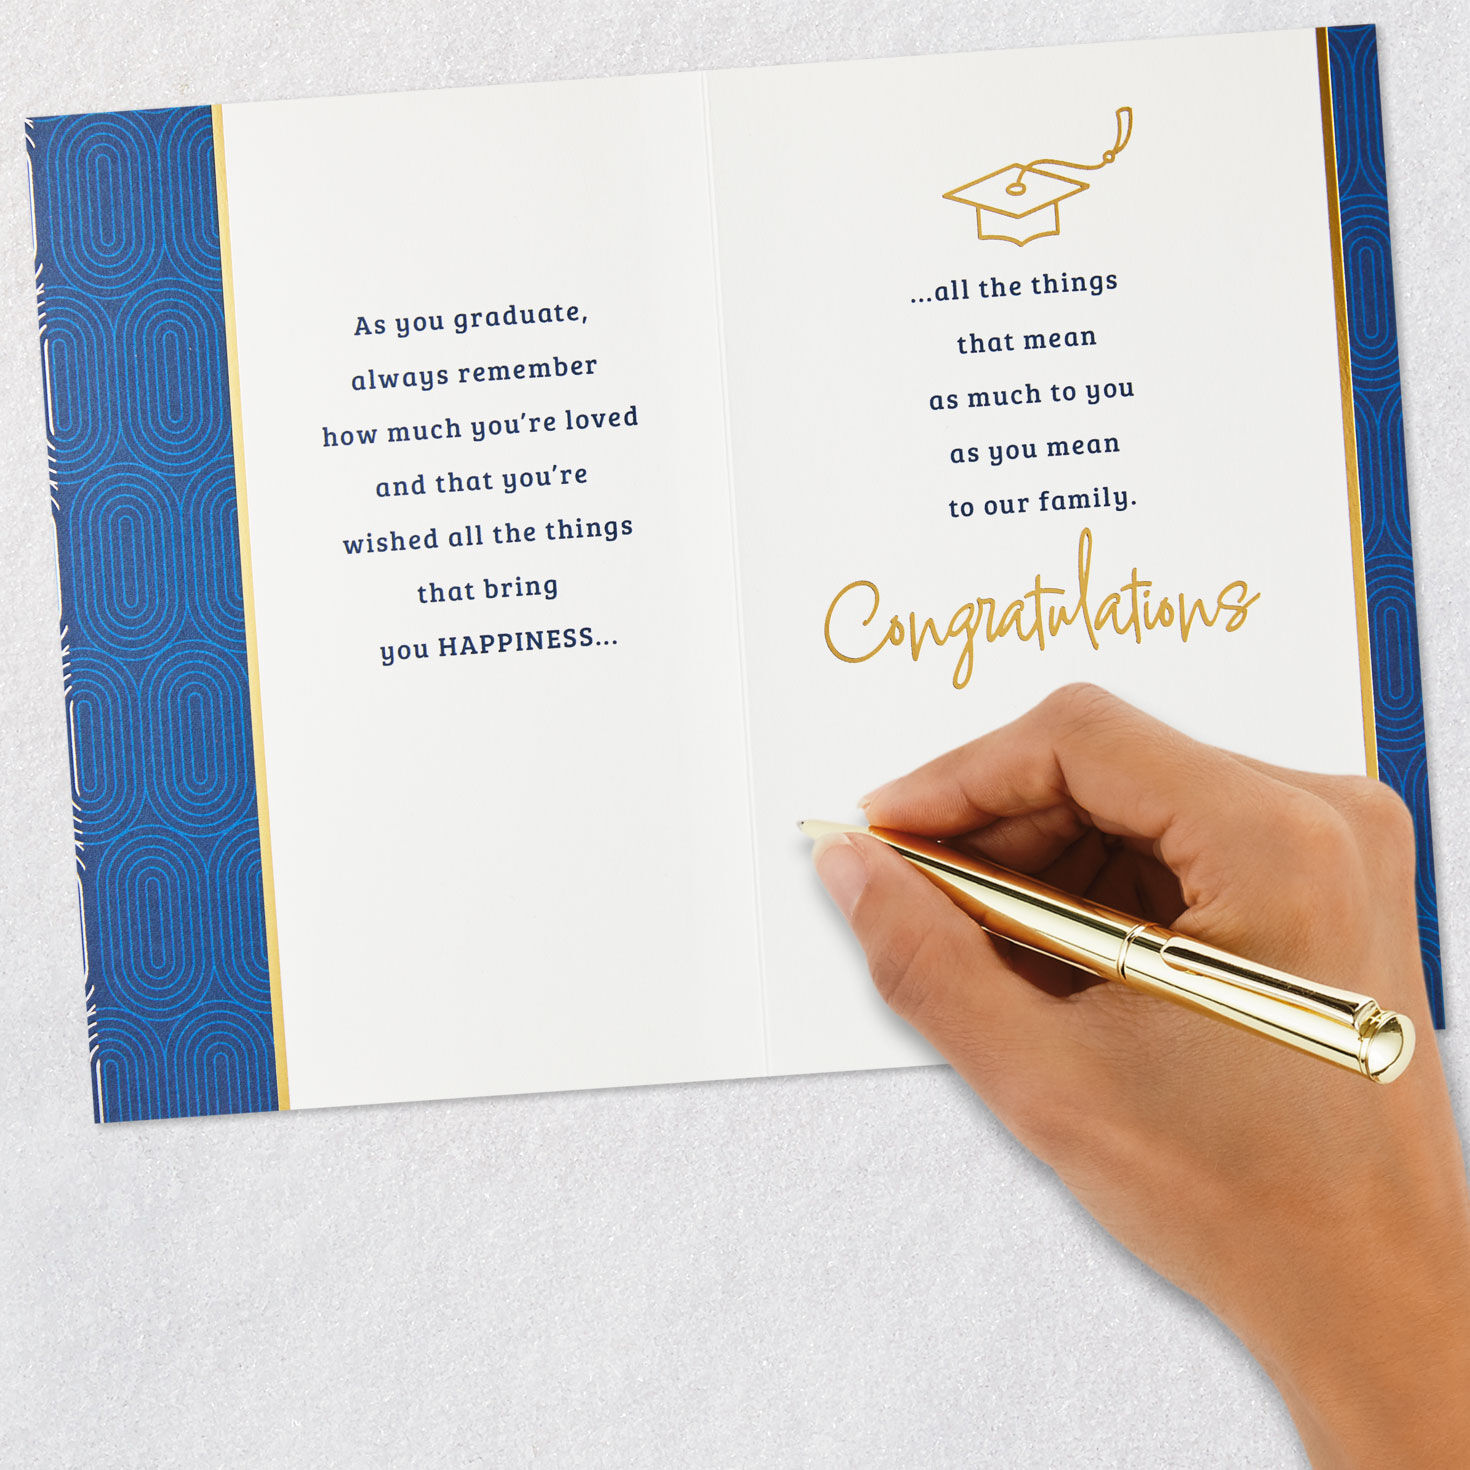 As you graduate,
always remember
how much you're loved
and that you're
wished all the things
that bring
you HAPPINESS...
...all the things
that mean
as much to you
as you mean
to our family.
Congratulations